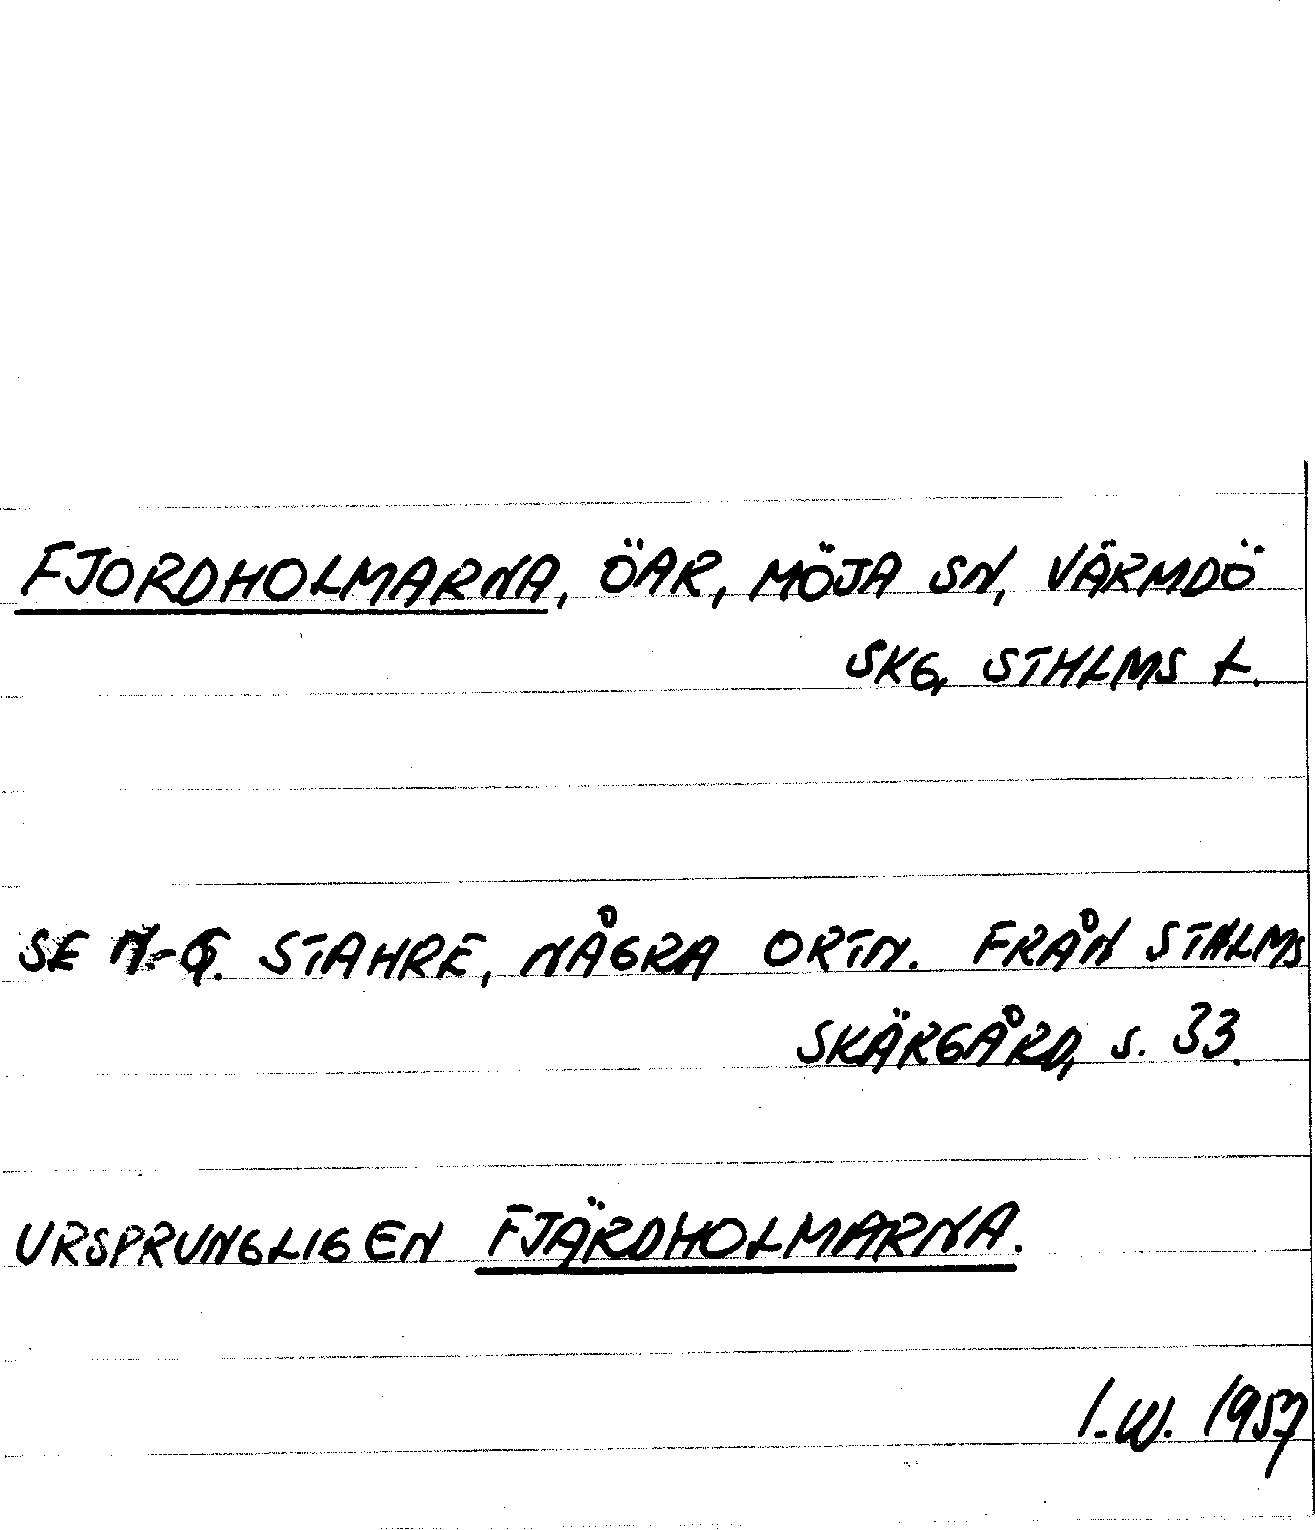 FJORDHOLMARNA, ÖAR, MÖJA SN, VÄRMDÖ
SKG, STHLMS L.
SE N-G. STAHRE, NÅGRA ORTN. FRÅN STHLMS
SKÄRGÅRD, S. 33.
URSPRUNGLIGEN FJÄRDHOLMARNA.
I.W. 1957